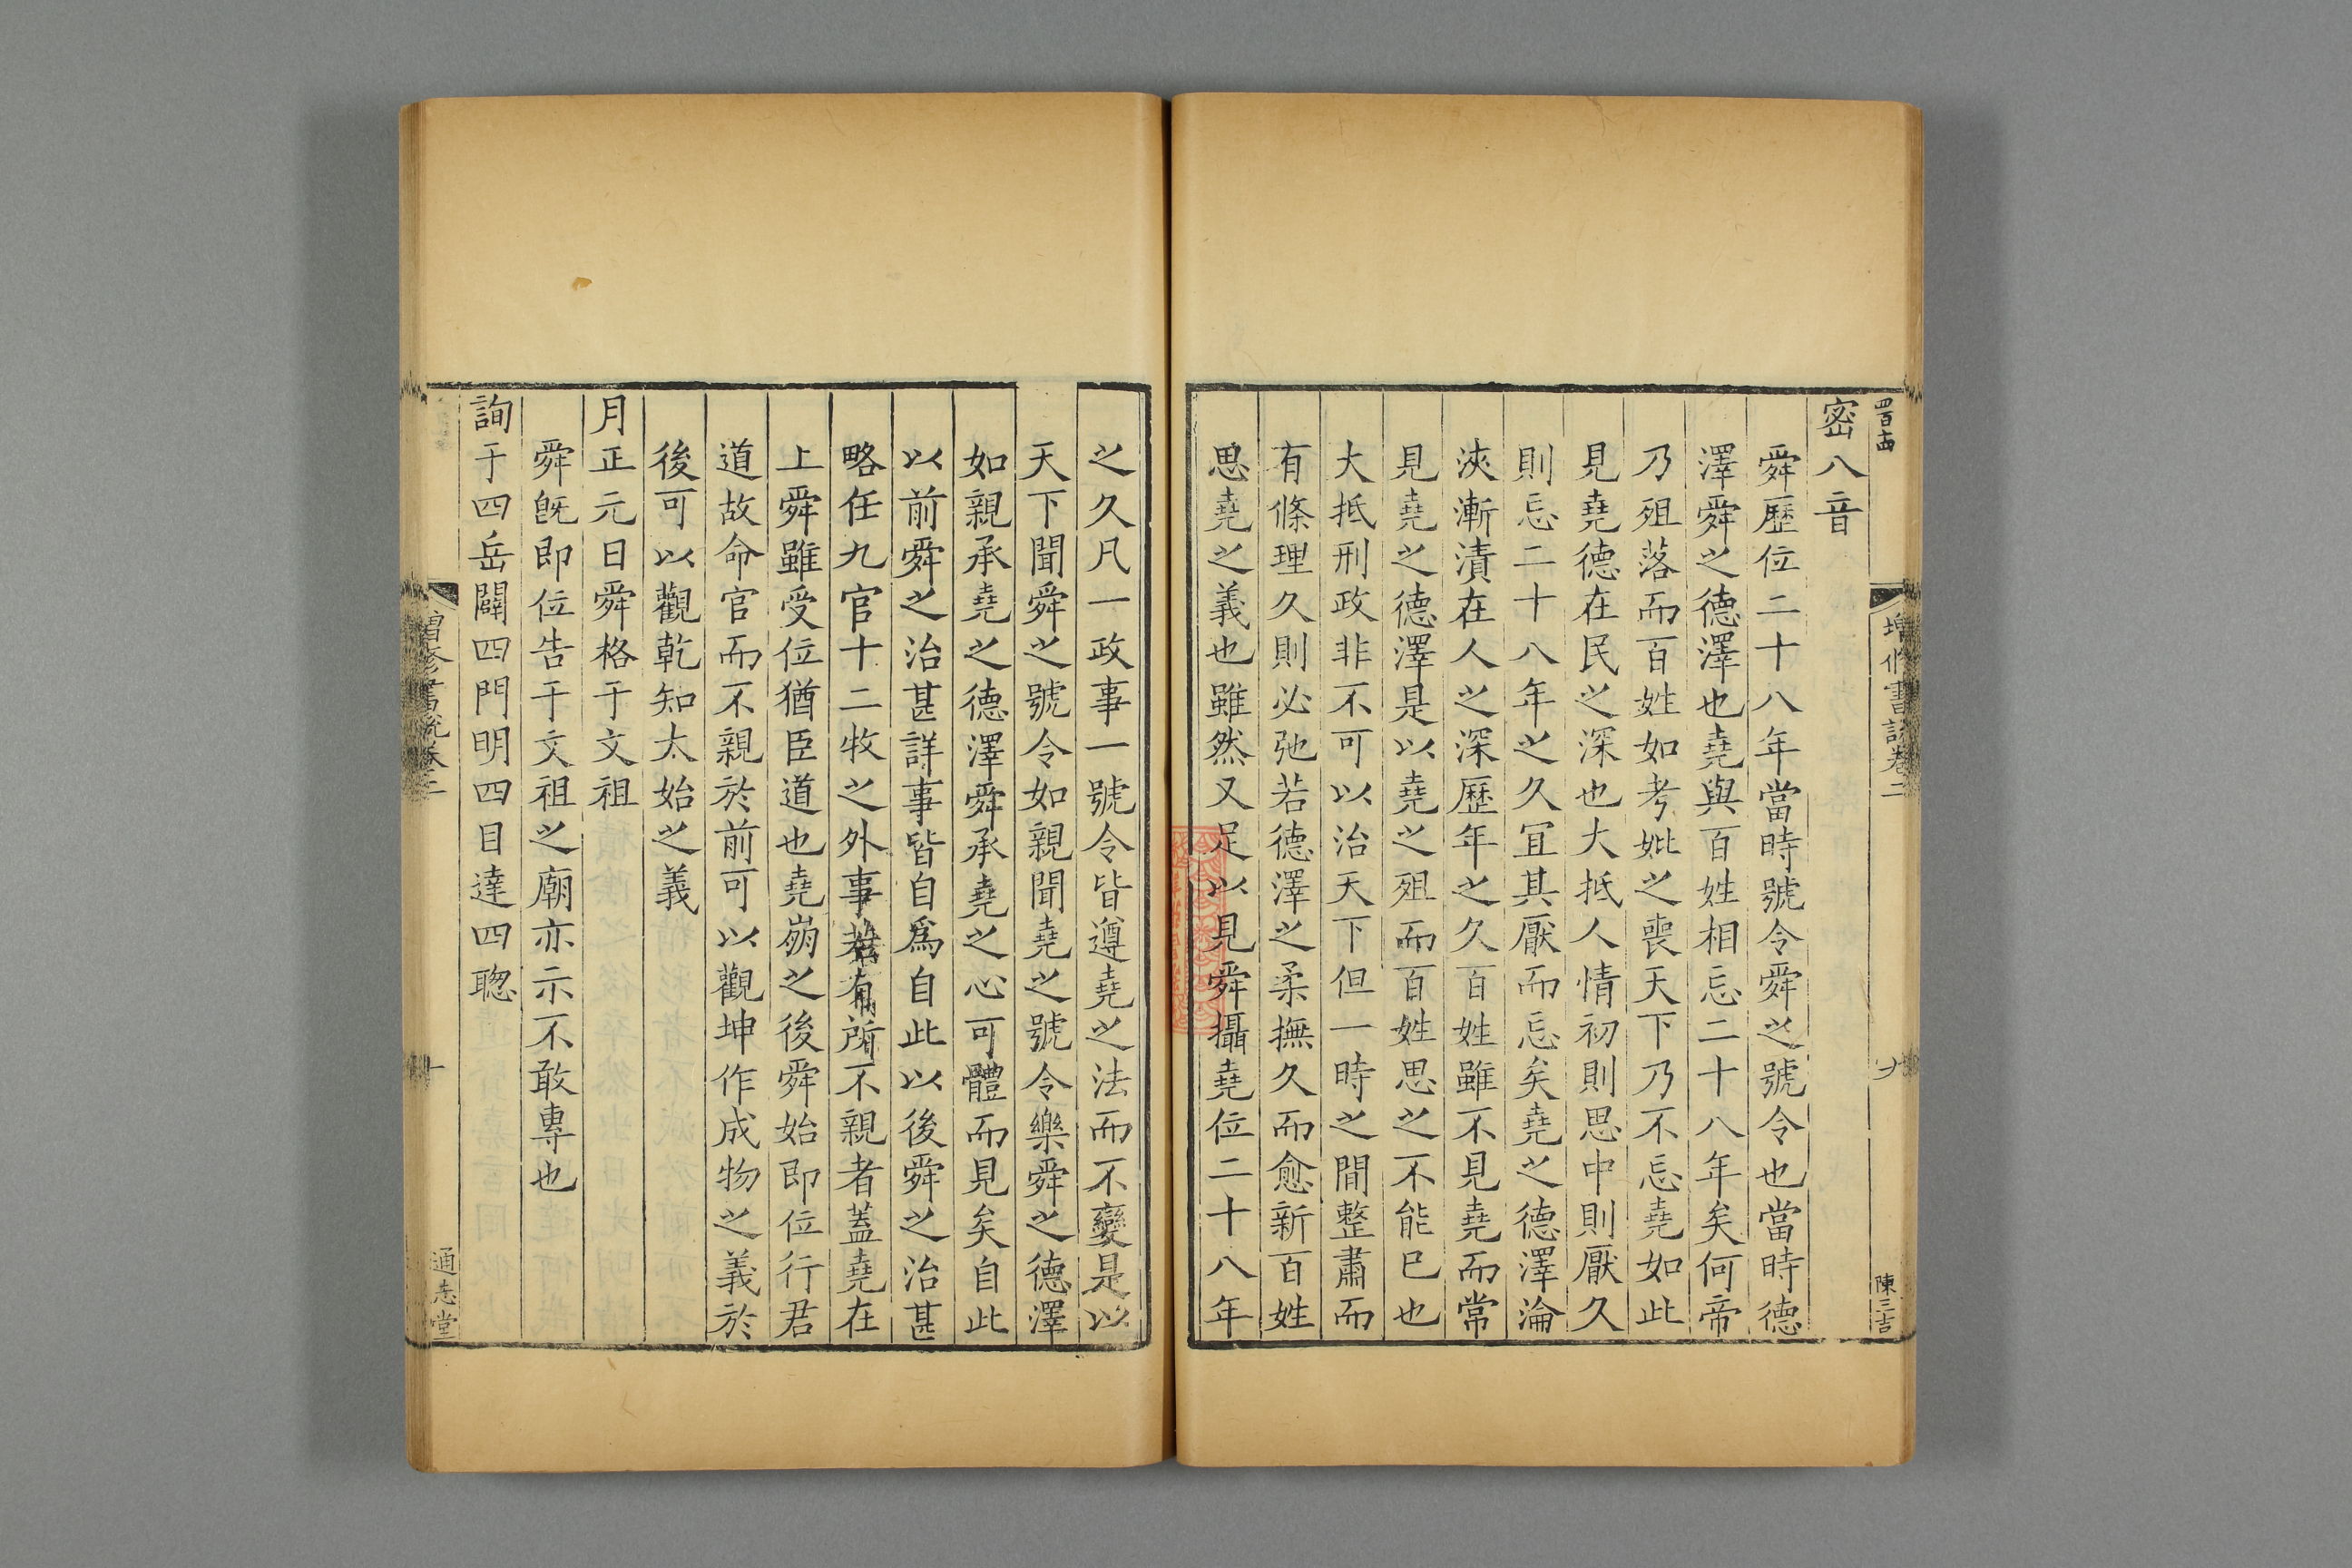 四百十四
增修書說卷二
九
陳三吉
密八音
舜歷位二十八年當時號令舜之號令也當時德
澤舜之德澤也堯與百姓相忘二十八年矣何帝
乃殂落而百姓如考妣之喪天下乃不忘堯如此
見堯德在民之深也大抵人情初則思中則厭久
則忘二十八年之久宜其厭而忘矣堯之德澤淪
浹漸漬在人之深歷年之久百姓雖不見堯而常
見堯之德澤是以堯之殂而百姓思之不能已也
大抵刑政非不可以治天下但一時之間整肅而
有條理久則必弛若德澤之柔撫久而愈新百姓
思堯之義也雖然又足以見舜攝堯位二十八年
之久凡一政事一號令皆遵堯之法而不變是以
天下聞舜之號令如親聞堯之號令樂舜之德澤
如親承堯之德澤舜承堯之心可體而見矣自此
以前舜之治甚詳事皆自爲自此以後舜之治甚
略任九官十二牧之外事若有所不親者蓋堯在
上舜雖受位猶臣道也堯崩之後舜始即位行君
道故命官而不親於前可以觀坤作成物之義於
後可以觀乾知太始之義
月正元日舜格于文祖
舜旣即位告于文祖之廟亦示不敢專也
詢于四岳闢四門明四目達四聰
增修書說卷二
十
通志堂